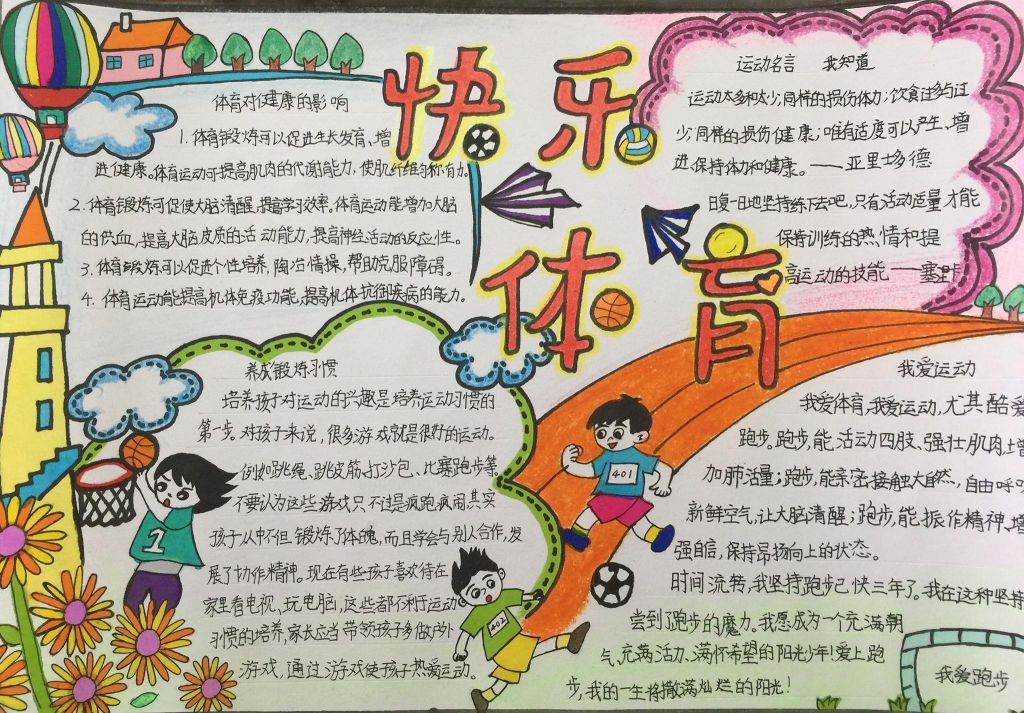 快乐
体育
体育对健康的影响
1. 体育锻炼可以促进生长发育、增
进健康。体育运动可提高肌肉的代谢能力，使肌纤维匀称有力。
2. 体育锻炼可促使大脑清醒，提高学习效率。体育运动能增加大脑
的供血，提高大脑皮质的活动能力，提高神经活动的反应性。
3. 体育锻炼可以促进个性培养，陶冶情操，帮助克服障碍。
4. 体育运动能提高机体免疫功能，提高机体抗御疾病的能力。
运动名言 我知道
运动太多和太少，同样的损伤体力；饮食过多与过
少，同样的损伤健康；唯有适度可以产生、增
进、保持体力和健康。——亚里士多德
日复一日地坚持练下去吧，只有活动适量才能
保持训练的热情和提
高运动的技能——塞里卡
养成锻炼习惯
培养孩子对运动的兴趣是培养运动习惯的
第一步。对孩子来说，很多游戏就是很好的运动。
例如跳绳、跳皮筋、打沙包、比赛跑步等。
不要认为这些游戏只不过是疯跑疯闹，其实
孩子从中不但锻炼了体魄，而且学会与别人合作，发
展了协作精神。现在有些孩子喜欢待在
家里看电视、玩电脑，这些都不利于运动
习惯的培养，家长应当带领孩子多做户外
游戏，通过游戏使孩子热爱运动。
我爱运动
我爱体育，我爱运动，尤其酷爱
跑步。跑步，能活动四肢、强壮肌肉、增
加肺活量；跑步，能亲密接触大自然，自由呼吸
新鲜空气，让大脑清醒；跑步，能振作精神、增
强自信，保持昂扬向上的状态。
时间流转，我坚持跑步已快三年了。我在这种坚持
尝到了跑步的魔力。我愿成为一个充满朝
气、充满活力、满怀希望的阳光少年！爱上跑
步，我的一生将撒满灿烂的阳光！
我爱跑步
1
401
402